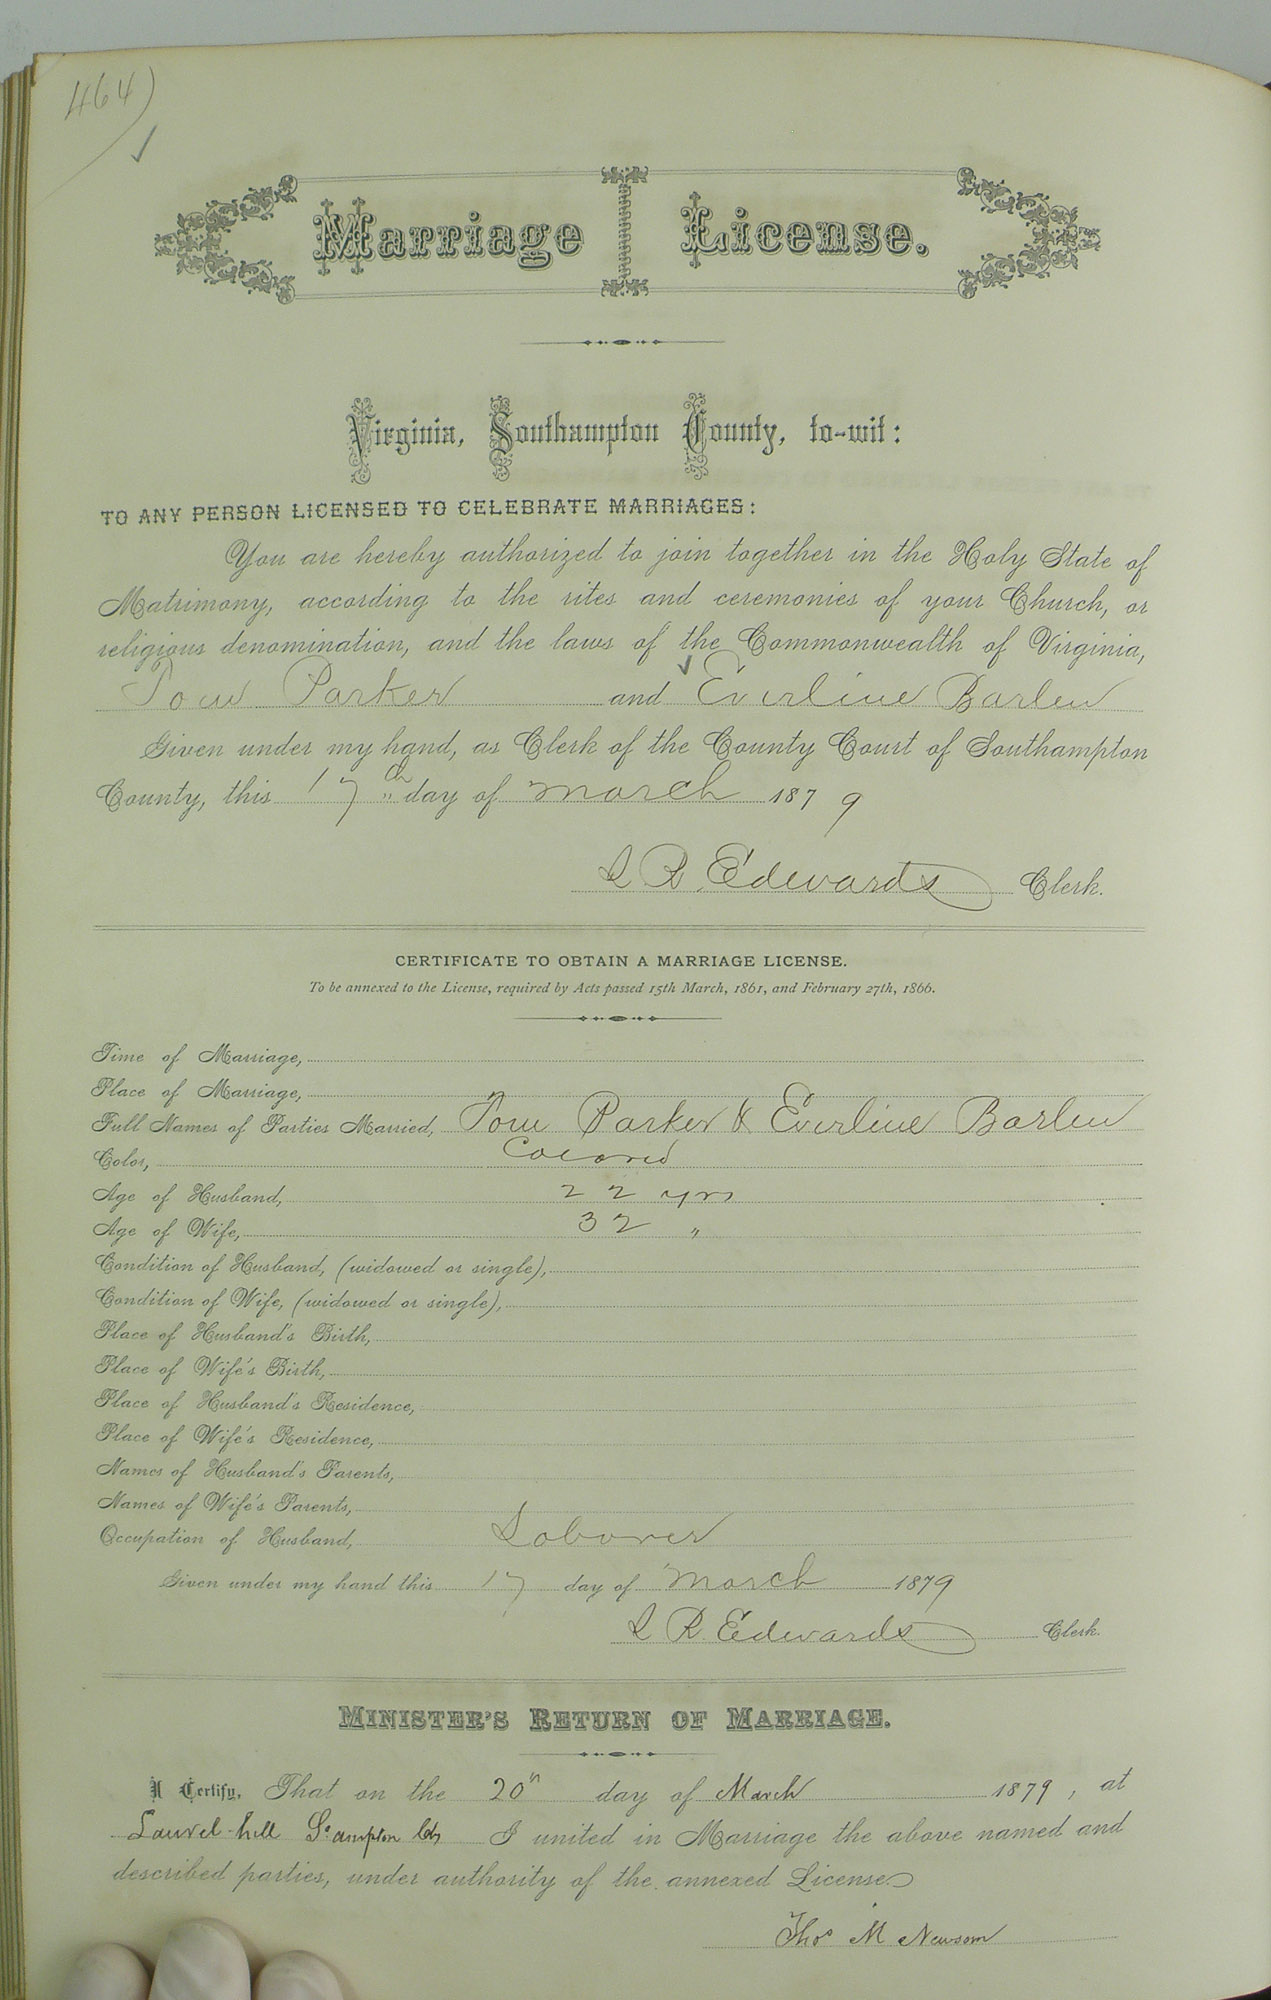 464)
Marriage License.
Virginia, Southampton County, to-wit:
TO ANY PERSON LICENSED TO CELEBRATE MARRIAGES:
You are hereby authorized to join together in the Holy State of
Matrimony, according to the rites and ceremonies of your Church, or
religious denomination, and the laws of the Commonwealth of Virginia,
Tom Parker and Everline Barlew
Given under my hand, as Clerk of the County Court of Southampton
County, this 17th day of March 1879
L R. Edwards Clerk.
CERTIFICATE TO OBTAIN A MARRIAGE LICENSE.
To be annexed to the License, required by Acts passed 15th March, 1861, and February 27th, 1866.
Time of Marriage,
Place of Marriage,
Full Names of Parties Married, Tom Parker & Everline Barlew
Color, Colored
Age of Husband, 22 yrs
Age of Wife, 32 "
Condition of Husband, (widowed or single),
Condition of Wife, (widowed or single),
Place of Husband's Birth,
Place of Wife's Birth,
Place of Husband's Residence,
Place of Wife's Residence,
Names of Husband's Parents,
Names of Wife's Parents,
Occupation of Husband, Laborer
Given under my hand this 17 day of March 1879
L R. Edwards Clerk.
MINISTER'S RETURN OF MARRIAGE.
I Certify, That on the 20th day of March 1879, at
Laurel-hill So ampton Cty I united in Marriage the above named and
described parties, under authority of the annexed License.
Thos M Newsom